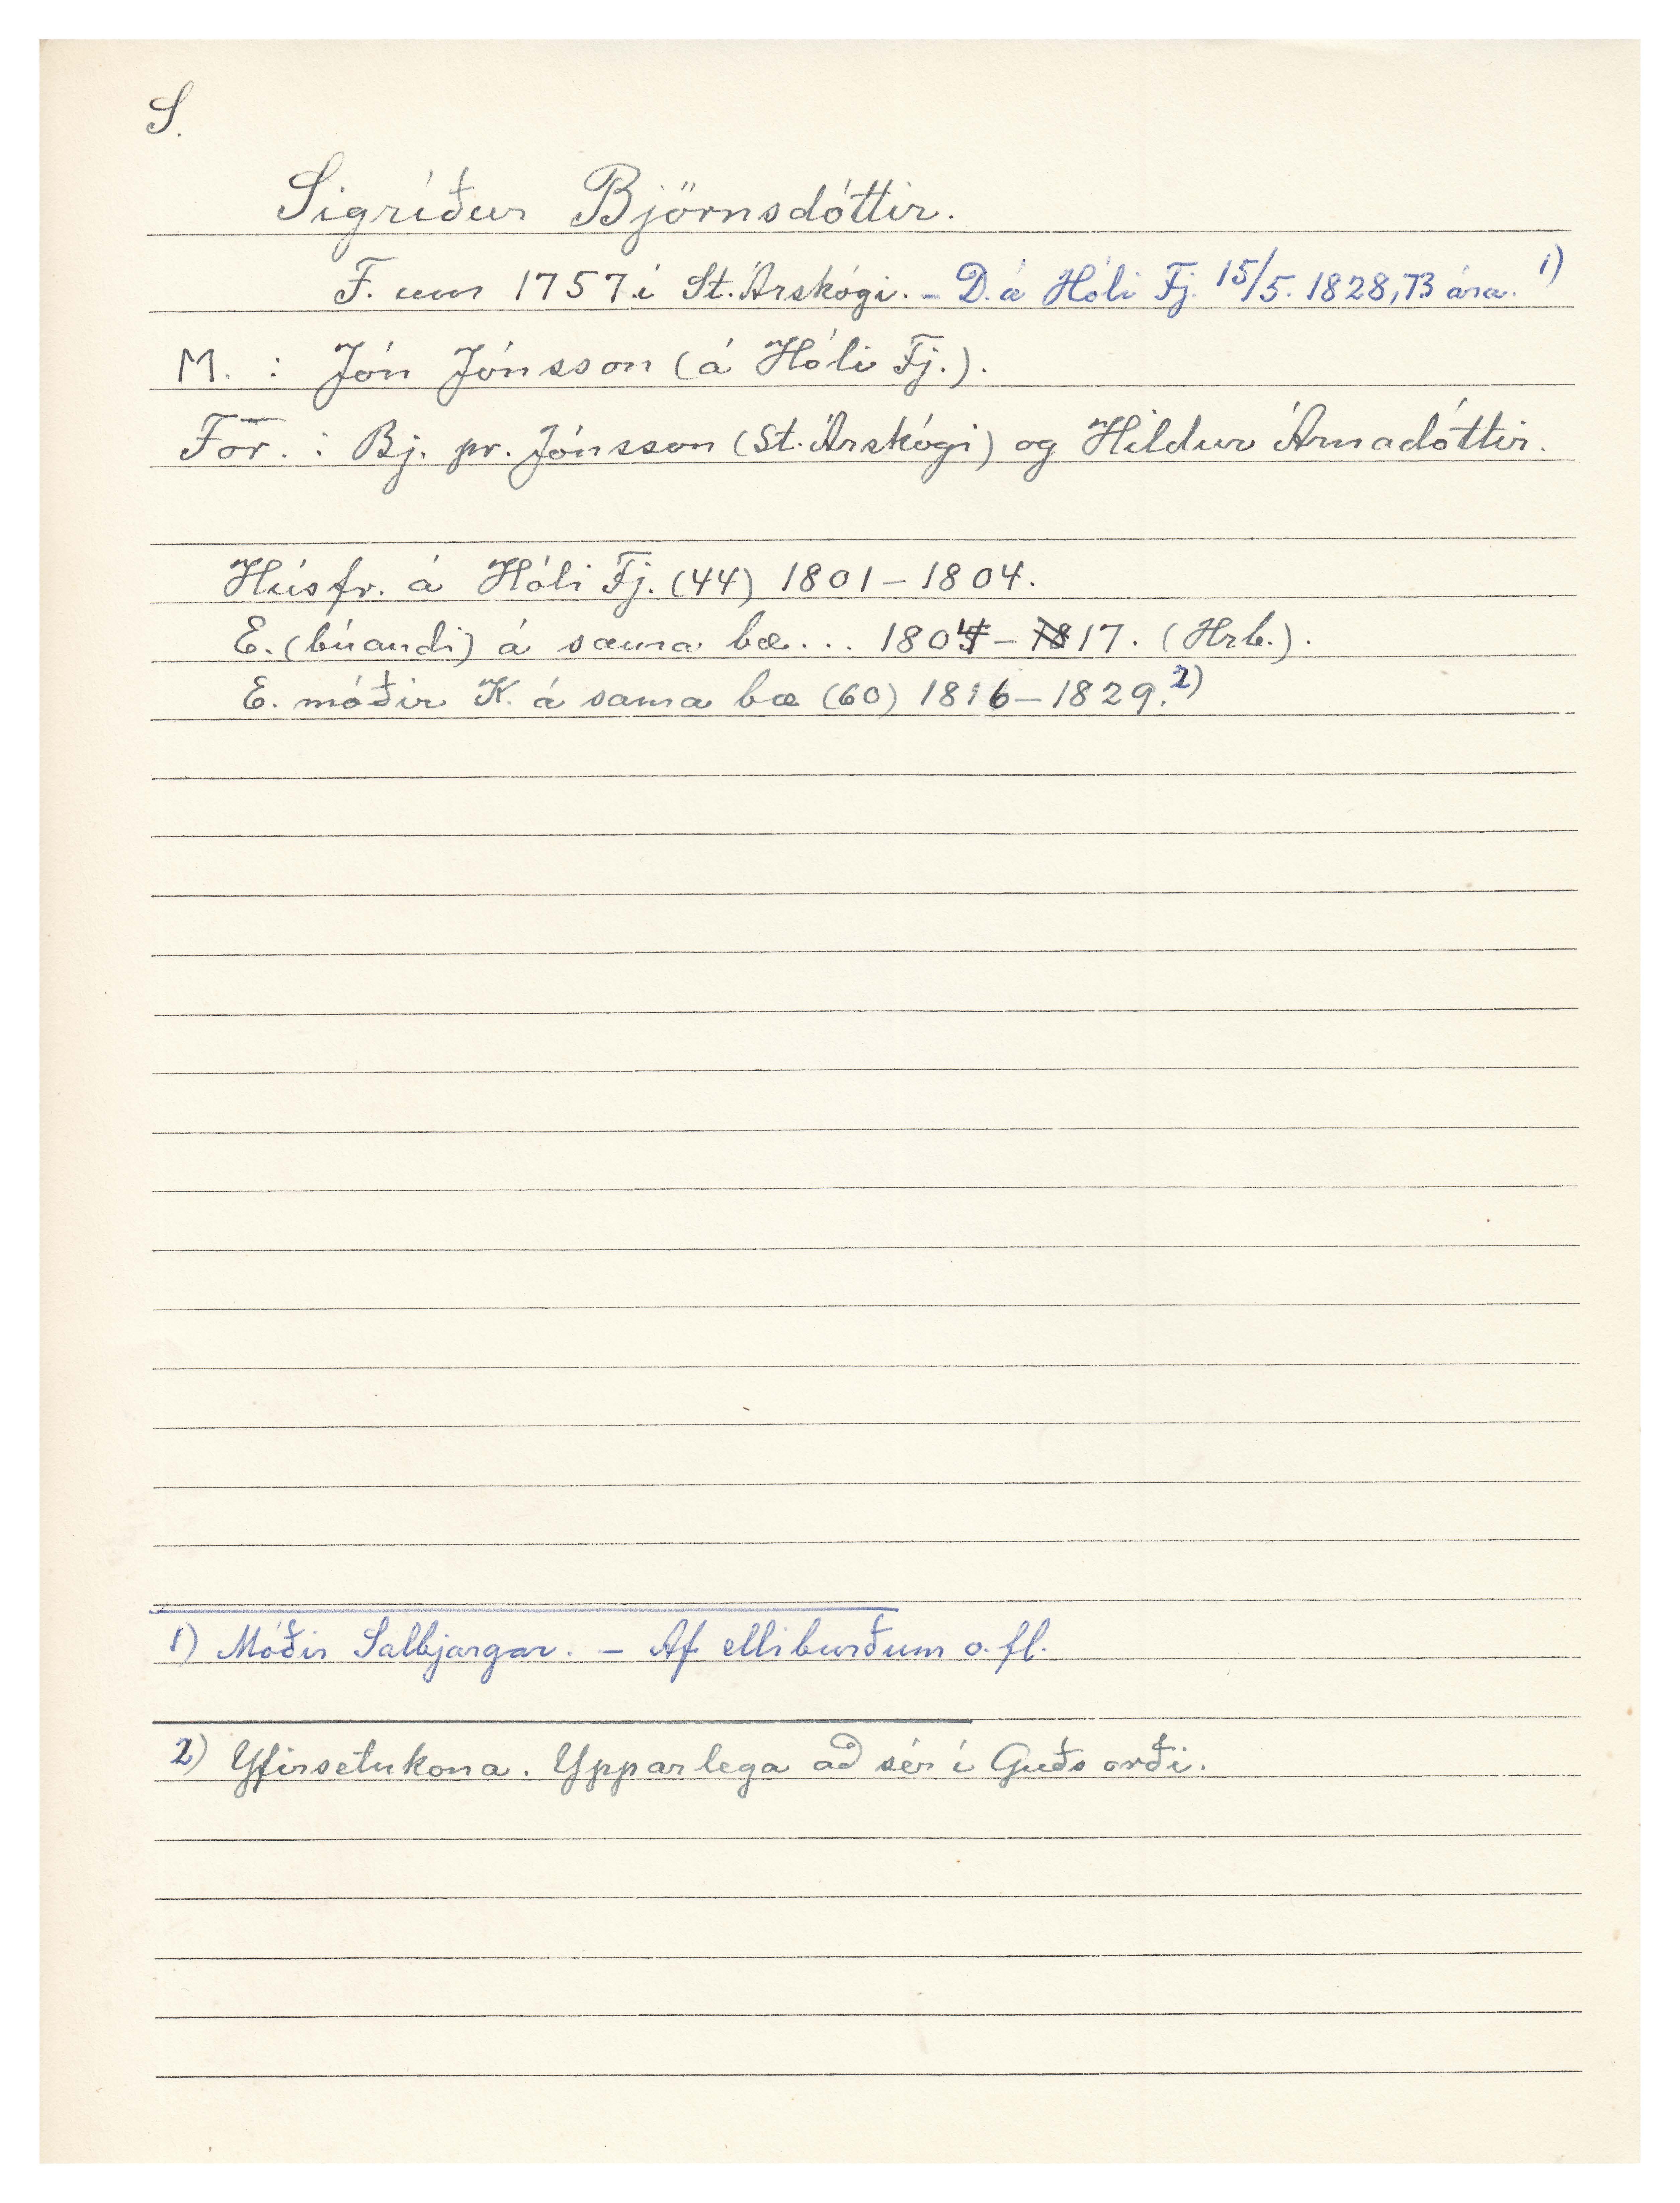 S.
Sigríður Björnsdóttir.
F. um 1757 í St. Árskógi. – D. á Hóli Fj. 15/5. 1828, 73 ára. 1)
M. : Jón Jónsson (á Hóli Fj.).
For. : Bj. pr. Jónsson (St. Árskógi) og Hildur Árnadóttir.
Húsfr. á Hóli Fj. (44) 1801 – 1804.
E. (búandi) á sama bæ... 1804 – 17. (Hrb.).
E. móðir K. á sama bæ (60) 1816 – 1829. 2)
1) Móðir Salbjargar. – Af elliburðum o. fl.
2) Yfirsetukona. Ypparlega að sér í Guðs orði.